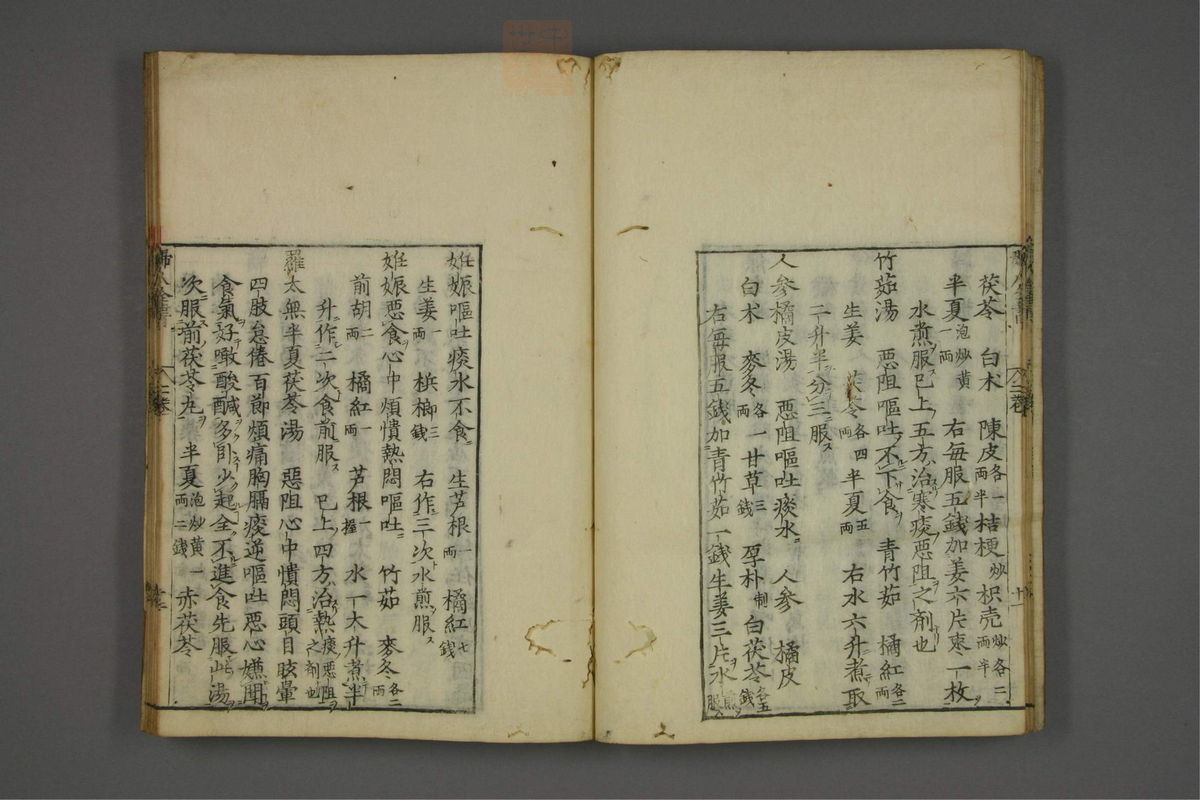 茯苓 白朮 陳皮各一両半 桔梗炒 枳壳炒各二両半
半夏泡炒黄一両 右毎服五錢加姜六片棗一枚
水煎服巳上五方治寒痰悪阻之剤也
竹茹湯 悪阻嘔吐不下食 青竹茹 橘紅各二両
生姜 茯苓各四両 半夏五両 右水六升煮取
二升半分三服
人參橘皮湯 悪阻嘔吐痰水 人參 橘皮
白朮 麥冬各一両 甘草三錢 厚朴制 白茯苓各五錢
右毎服五錢加青竹茹一錢生姜三片水煎服
妊娠嘔吐痰水不食 生芦根一両 橘紅七錢
生姜一両 梹榔三錢 右作三次水煎服
妊娠悪食心中煩憒熱悶嘔吐 竹茹 麥冬各二両
前胡二両 橘紅一両 芦根一握 水一大升煮半
升作二次食前服 巳上四方治熱痰悪阻之剤也
羅太無半夏茯苓湯 惡阻心中憒悶頭目眩暈
四肢怠倦百節煩痛胸膈痰逆嘔吐惡心嫌聞
食氣好噉酸醎多卧少起全不進食先服此湯
次服前茯苓丸 半夏泡炒黄一両二錢 赤茯苓